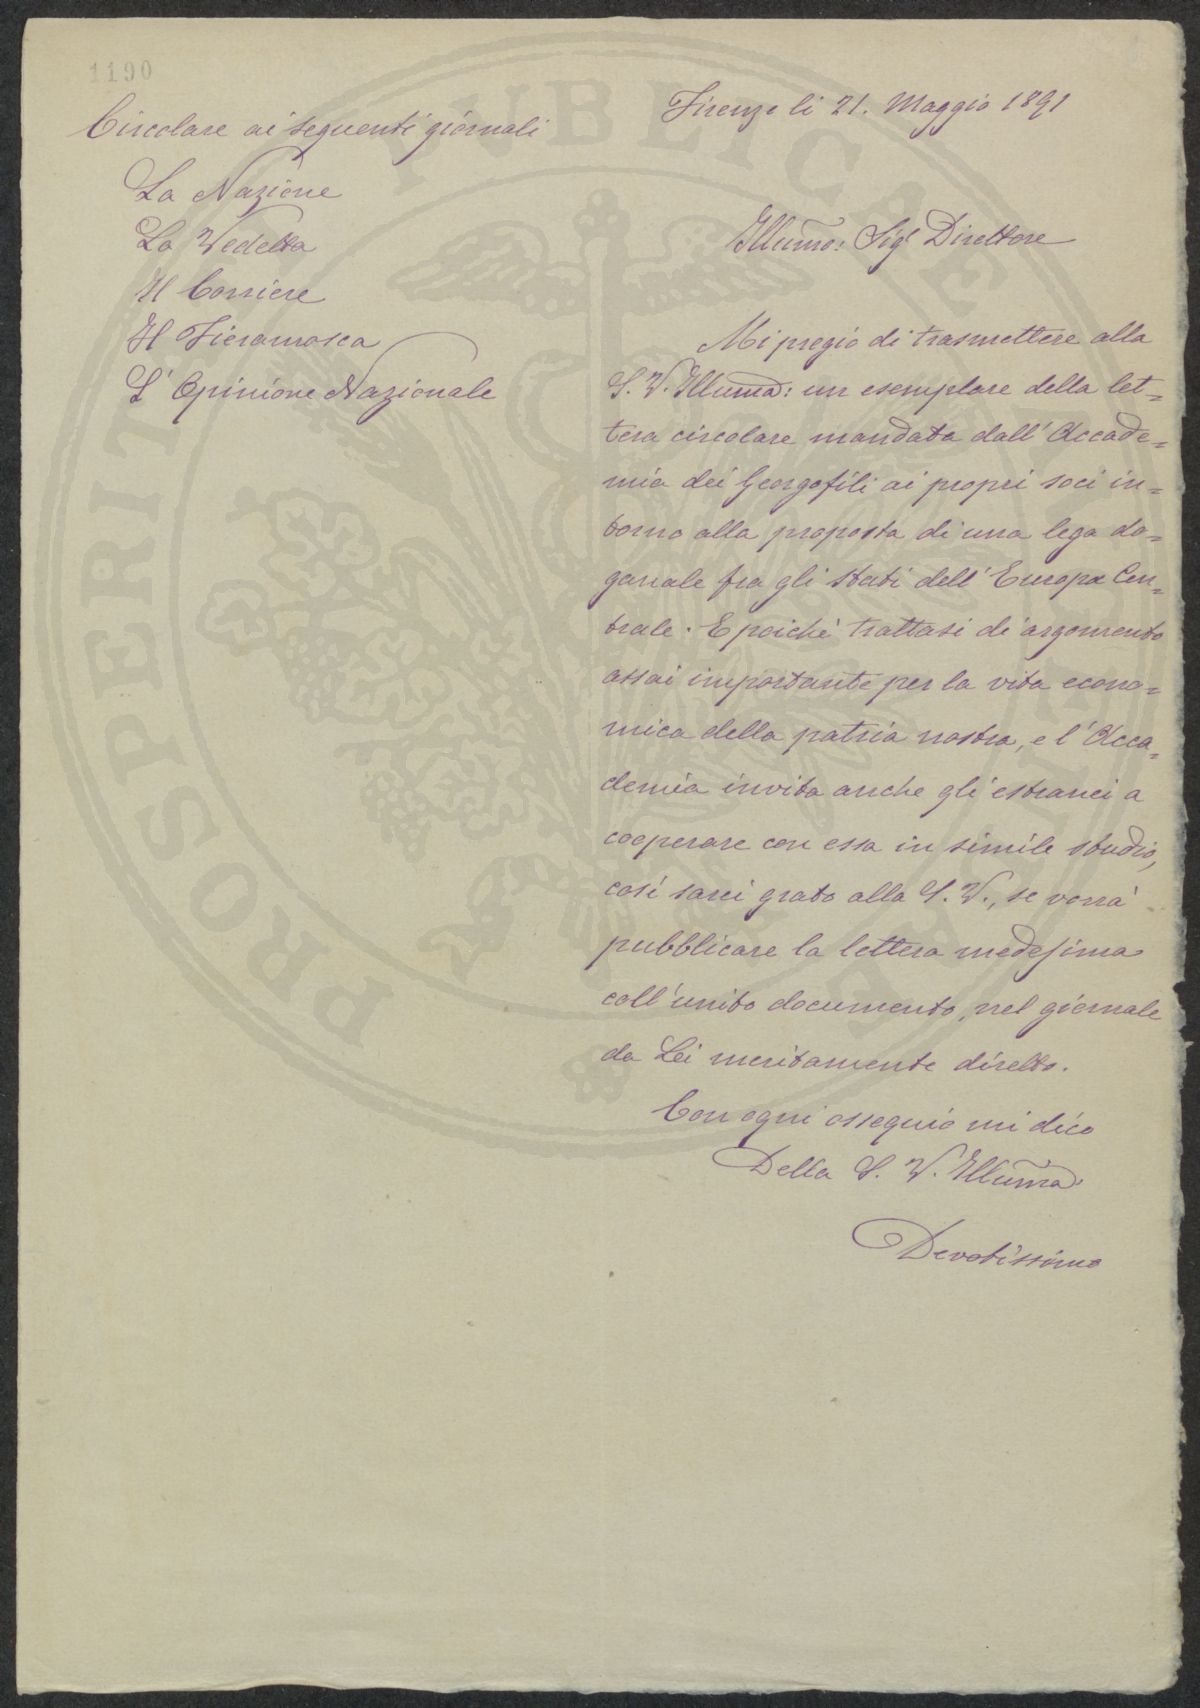 1190
Circolare ai seguenti giornali
La Nazione
La Vedetta
Il Corriere
Il Fieramosca
L'Opinione Nazionale
Firenze li 21. Maggio 1891
Illumo: Sigr Direttore
Mi pregio di trasmettere alla
S. V. Illuma: un esemplare della let=
tera circolare mandata dall'Accade=
mia dei Georgofili ai propri soci in=
torno alla proposta di una lega do=
ganale fra gli Stati dell'Europa Cen=
trale. E poiché trattasi di argomento
assai importante per la vita econo=
mica della patria nostra, e l'Acca=
demia invita anche gli estranei a
cooperare con essa in simile studio,
così sarei grato alla S. V., se vorrà
pubblicare la lettera medesima
coll'unito documento, nel giornale
da Lei meritamente diretto.
Con ogni ossequio mi dico
Della S. V. Illuma:
Devotissimo
PROSPERITATI PUBLICAE